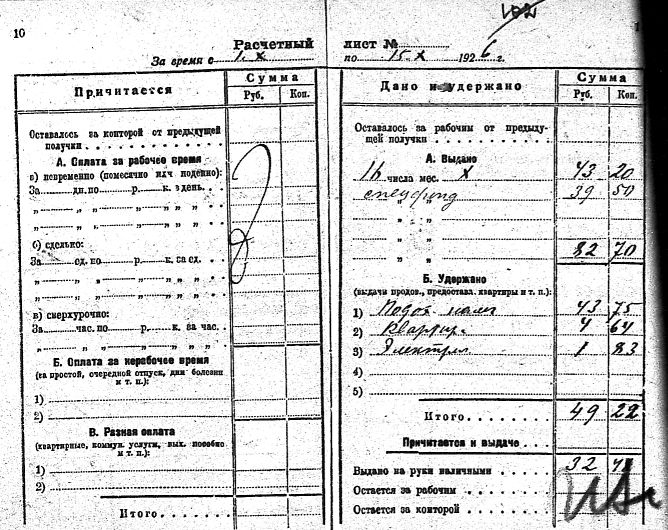 102
10
Расчетный
За время с 1.X
Причитается
Сумма
Руб. Коп.
Оставалось за конторой от предыдущей
получки
А. Оплата за рабочее время
а) повременно (помесячно или поденно):
За дн. по р. к. в день.
„ „ „ „ „ „ „
„ „ „ „ „ „ „
б) сдельно:
За сд. по р. к. за сд.
„ „ „ „ „ „ „
„ „ „ „ „ „ „
в) сверхурочно:
За час. по р. к. за час.
„ „ „ „ „ „ „
Б. Оплата за нерабочее время
(за простой, очередной отпуск, дни болезни
и т. п.):
1)
2)
В. Разная оплата
(квартирные, коммун. услуги, вых. пособие
и т. п.):
1)
2)
Итого
лист №
по 15.X 1926 г.
Дано и удержано
Сумма
Руб. Коп.
Оставалось за рабочим от предыду-
щей получки
А. Выдано
16 числа мес. X 43 20
спецфонд 39 50
„ „
„ „
82 70
Б. Удержано
(выдачи продов., предоставл. квартиры и т. п.):
1) Подох. 43 75
2) Квартир. 4 64
3) Электрич. 1 83
4)
5)
Итого 49 22
Причитается к выдаче
Выдано на руки наличными 32
Остается за рабочим
Остается за конторой